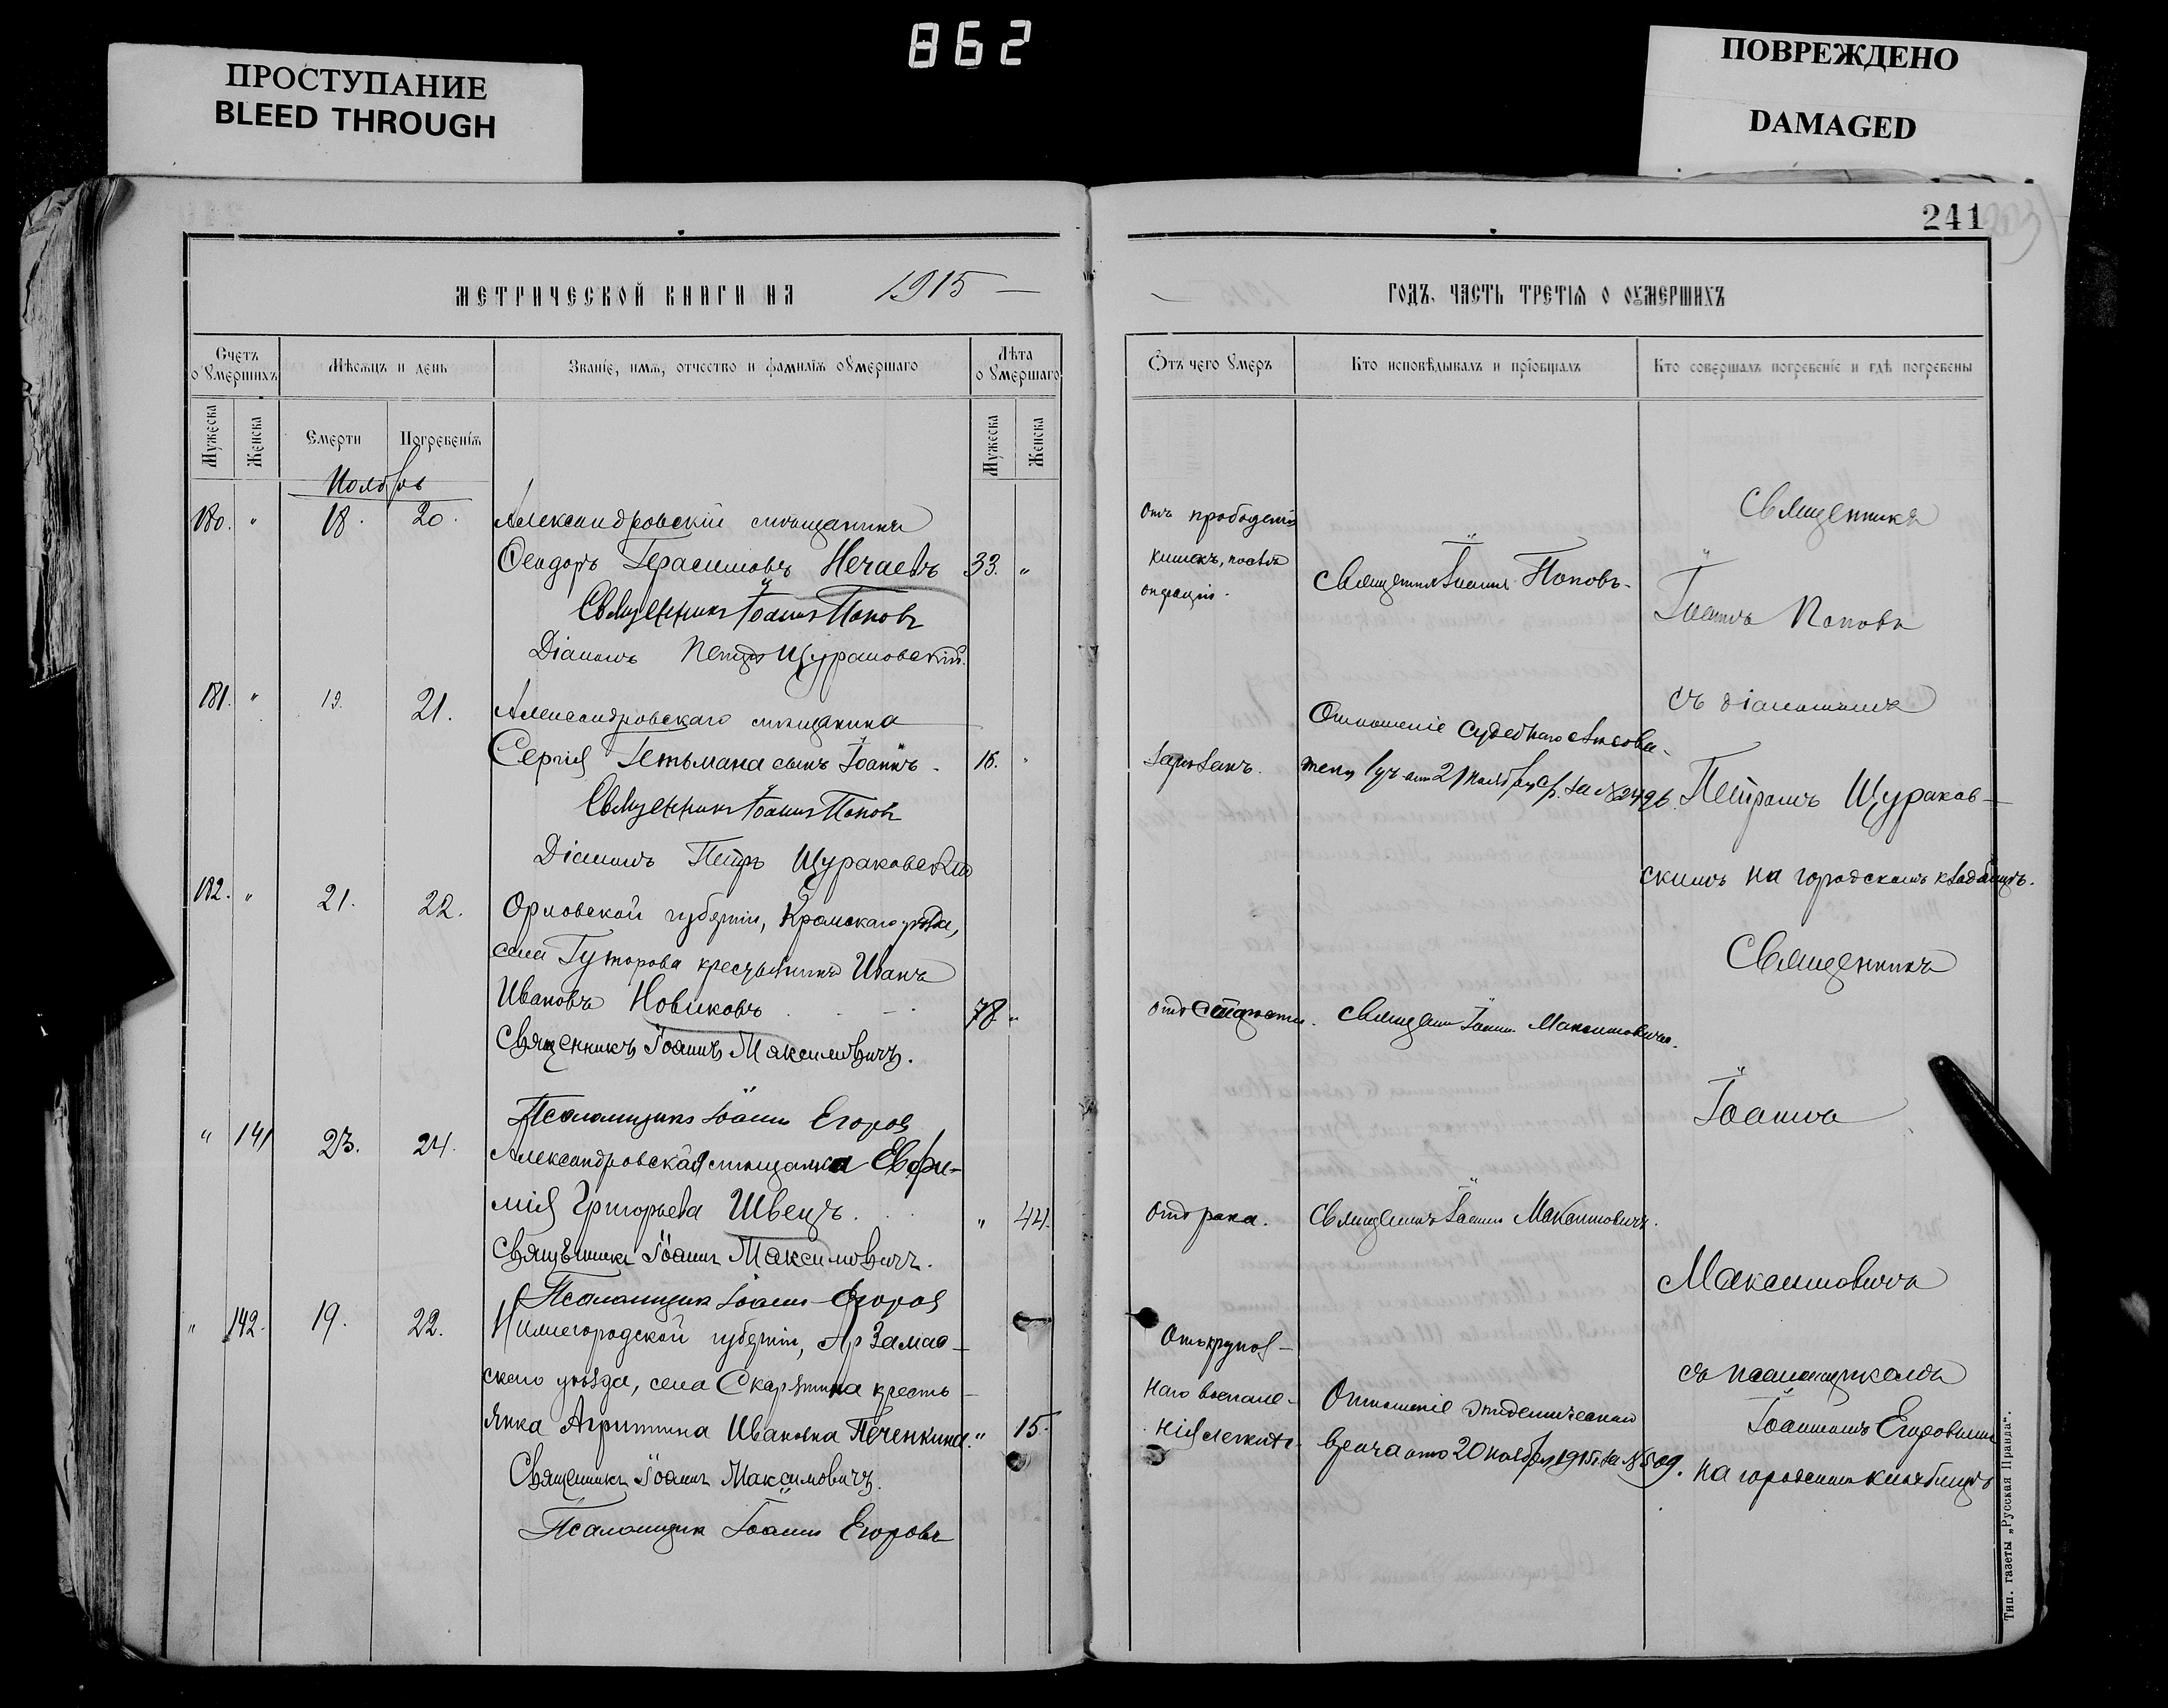 862
ПРОСТУПАНИЕ
BLEED THROUGH
ПОВРЕЖДЕНО
DAMAGED
241
МЕТРИЧЕСКОЙ КНИГИ НА 1915
Счетъ о умершихъ
Мѣсяцъ и день
Званіе, имя, отчество и фамилія умершаго
Лѣта о умершаго
Мужеска
Женска
Смерти
Погребенія
Мужеска
Женска
Ноябрь
180. " 18. 20. Александровскій мѣщанинъ
Ѳеодоръ Герасимовъ Нечаевъ 33. "
Священникъ Іоаннъ Поповъ
Діаконъ Петръ Щураковскій.
181. " 19. 21. Александровскаго мѣщанина
Сергія Гетьмана сынъ Іоаннъ. 16. "
Священникъ Іоаннъ Поповъ
Діаконъ Петръ Щураковскій
182. " 21. 22. Орловской губерніи, Кромскаго уѣзда,
села Гуторова крестьянинъ Иванъ
Ивановъ Новиковъ 78. "
Священникъ Іоаннъ Максимовичъ.
Псаломщикъ Іоаннъ Егоровъ
" 141 23. 24. Александровская мѣщанка Евфи-
мія Григорьева Швецъ. " 44.
Священникъ Іоаннъ Максимовичъ.
Псаломщикъ Іоаннъ Егоровъ
" 142. 19. 22. Нижегородской губерніи, Арзамас-
скаго уѣзда, села Скарятина кресть-
янка Агриппина Ивановна Печенкина. " 15.
Священникъ Іоаннъ Максимовичъ.
Псаломщикъ Іоаннъ Егоровъ
ГОДЪ, ЧАСТЬ ТРЕТІЯ О УМЕРШИХЪ
Отъ чего умеръ
Кто исповѣдывалъ и пріобщалъ
Кто совершалъ погребеніе и гдѣ погребены
Отъ прободенія
кишекъ, послѣ
операціи.
Священникъ Іоаннъ Поповъ.
Священникъ
Іоаннъ Поповъ
съ діакономъ
Петромъ Щураков-
скимъ на городскомъ кладбищѣ.
Зарѣзанъ.
Отношеніе Судебнаго Слѣдова-
отъ 21 Ноября за № 2496.
отъ старости.
Священникъ Іоаннъ Максимовичъ.
Священникъ
Іоаннъ
Максимовичъ
съ псаломщикомъ
Іоанномъ Егоровымъ
на городскомъ кладбищѣ
отъ рака.
Священникъ Іоаннъ Максимовичъ.
Отъ крупоз-
наго воспале-
нія легкихъ.
Отношеніе эпидемическаго
врача отъ 20 ноября 1915 г. за № 509.
Тип. газеты „Русская Правда".